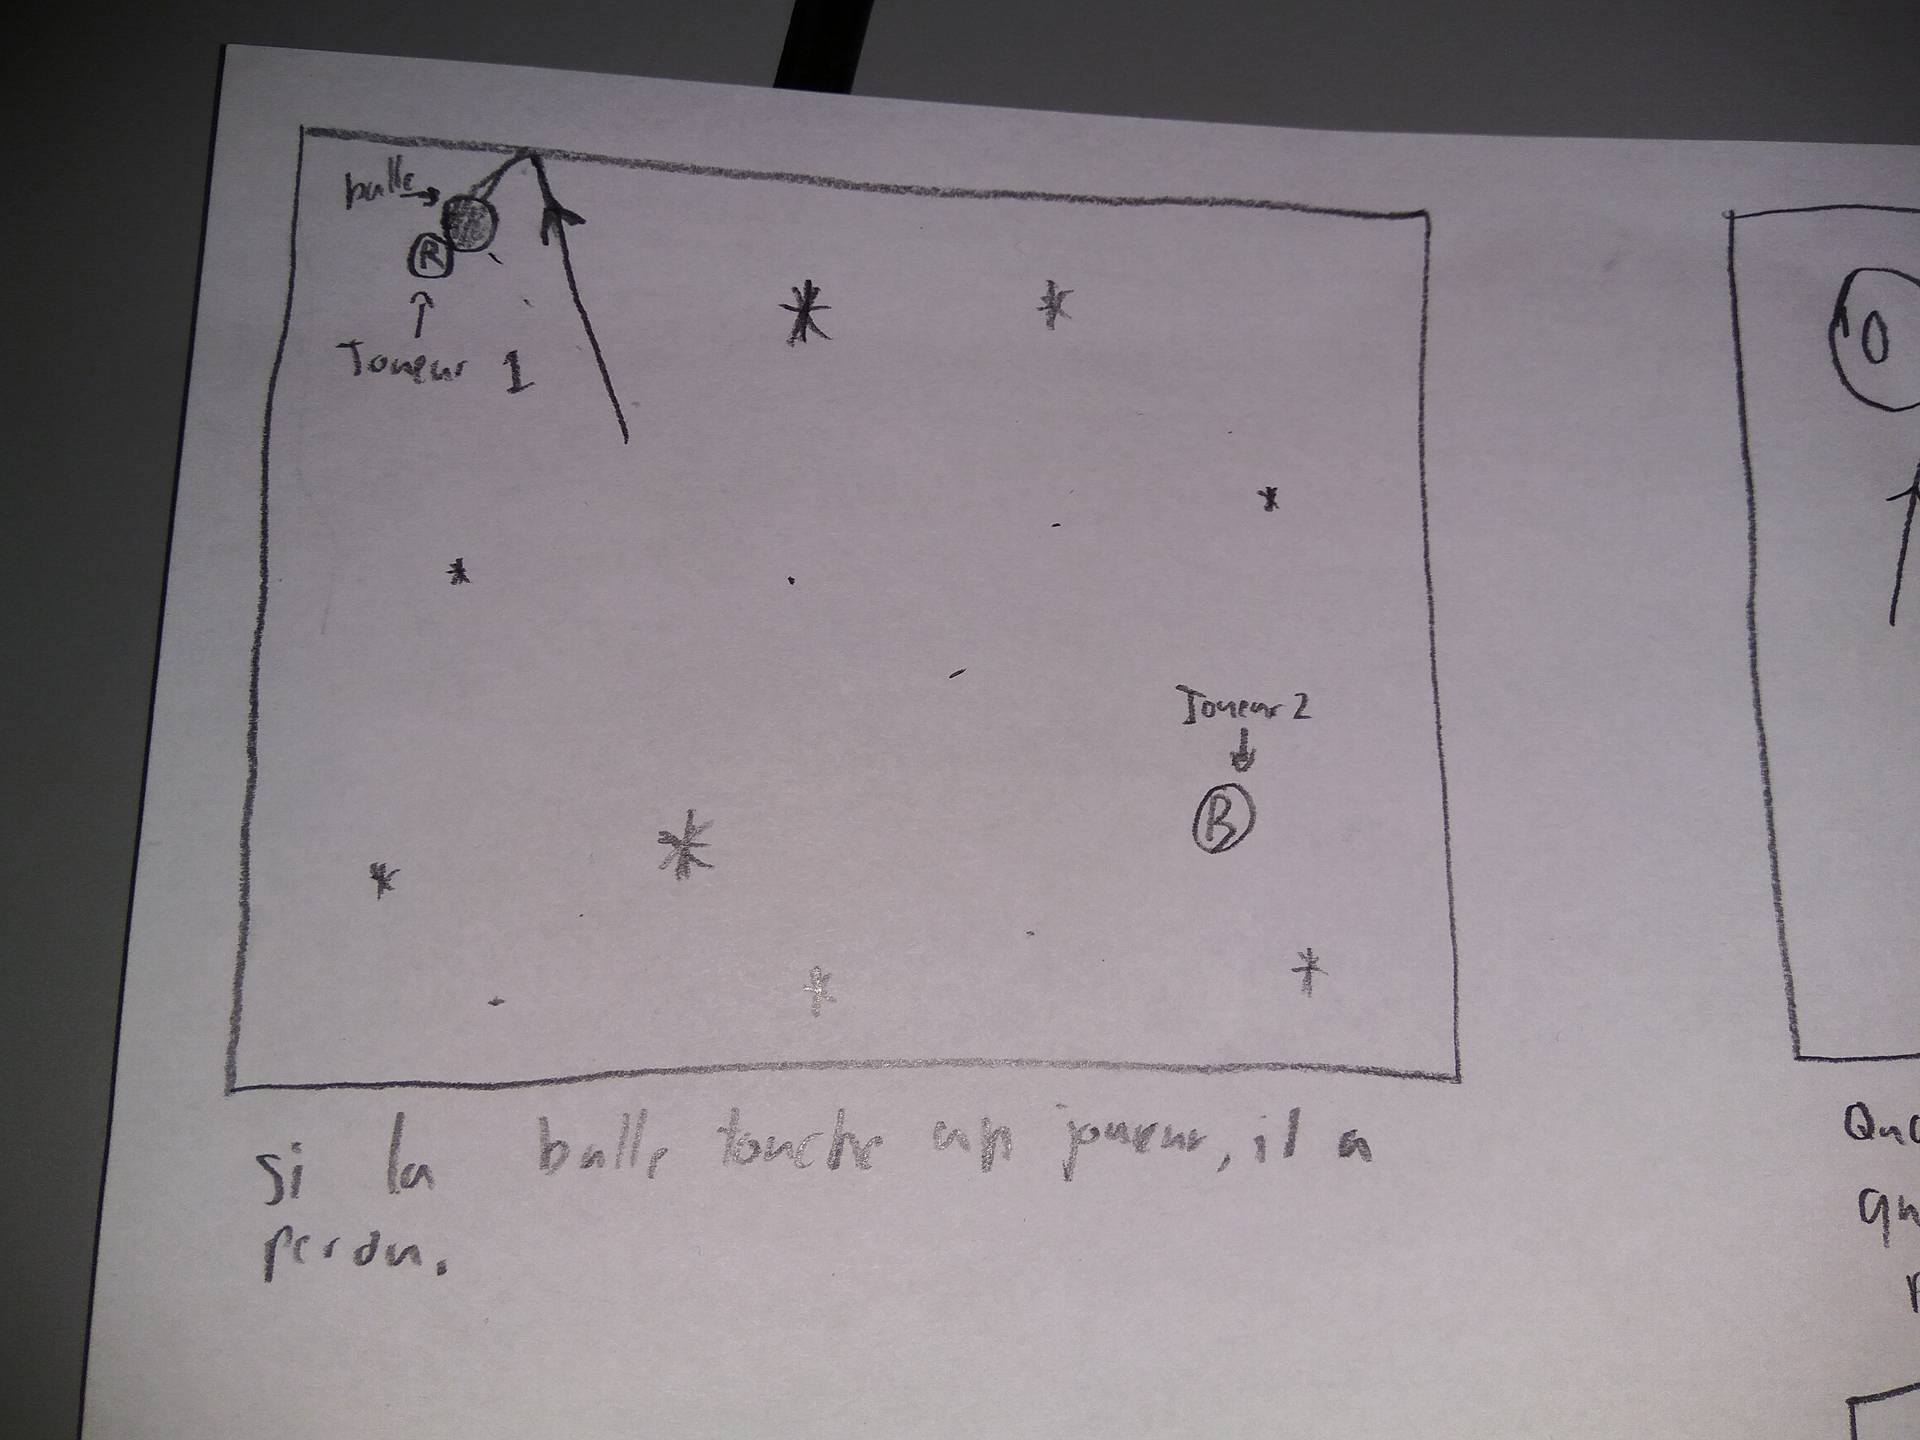 balle
R
Joueur 1
Joueur 2
B
si la balle touche un joueur, il a
perdu.
0